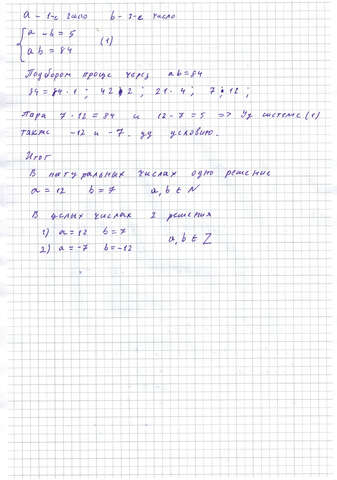 a - 1-е число b - 2-е число
{ a - b = 5
ab = 84 (1)
Подбором проще через ab = 84
84 = 84 · 1 ; 42 · 2 ; 21 · 4 ; 7 · 12 ;
Пара 7 · 12 = 84 и 12 - 7 = 5 => Уд системе (1)
также -12 и -7. уд условию.
Итог
В натуральных числах одно решение
a = 12 b = 7 a, b ∈ N
В целых числах 2 решения
1) a = 12 b = 7
2) a = -7 b = -12 a, b ∈ Z